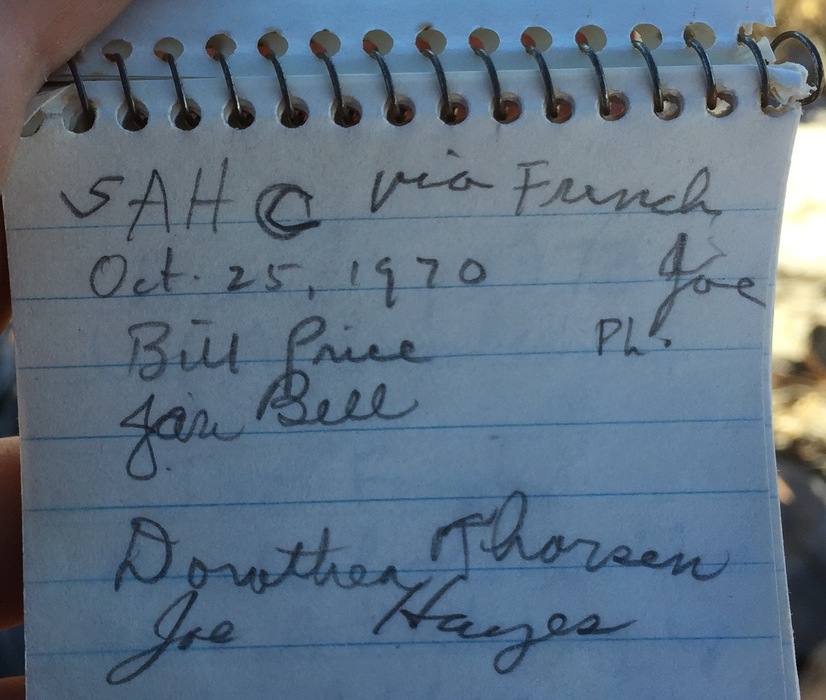 SAHC via French
Joe
Oct. 25, 1970
Ph.
Bill Price
Jan Bell
Dorothea Thorsen
Joe Hayes